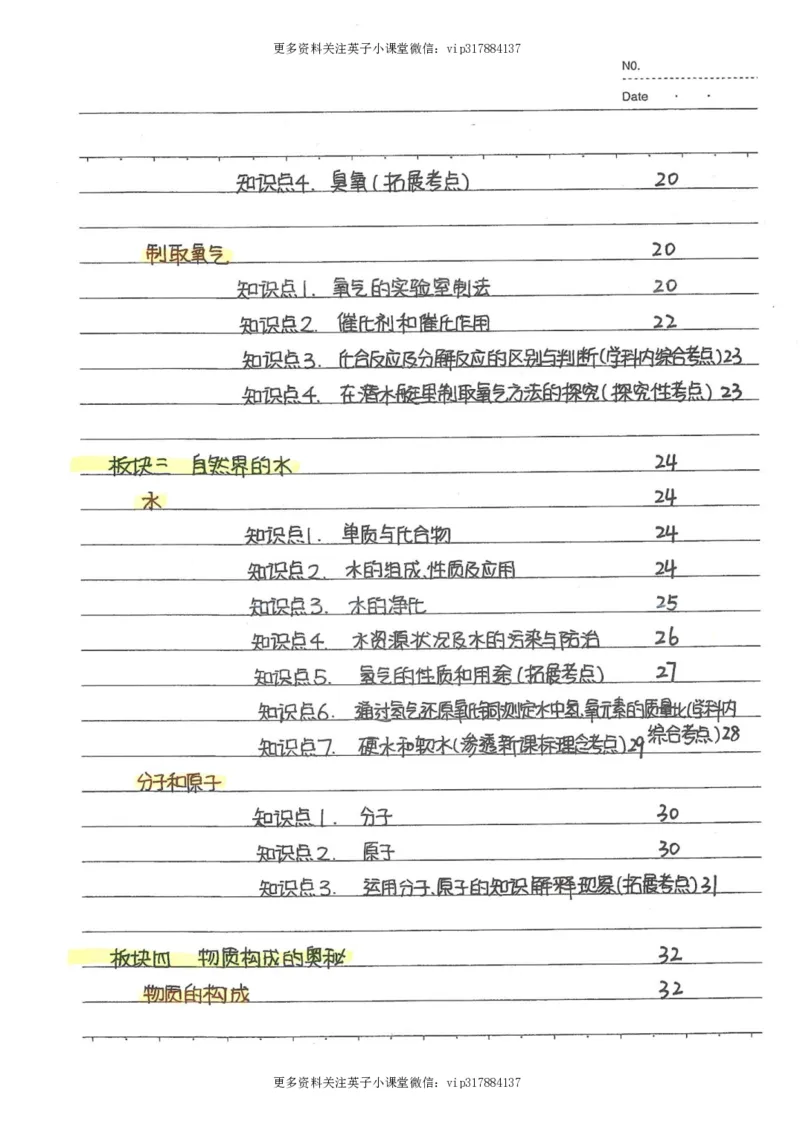 更多资料关注英子小课堂微信：vip317884137
NO.
Date · ·
知识点4. 臭氧(拓展考点) 20
制取氧气 20
知识点1. 氧气的实验室制法 20
知识点2. 催化剂和催化作用 22
知识点3. 化合反应及分解反应的区别与判断(学科内综合考点)23
知识点4. 在潜水艇里制取氧气方法的探究(探究性考点) 23
板块三 自然界的水 24
水 24
知识点1. 单质与化合物 24
知识点2. 水的组成、性质及应用 24
知识点3. 水的净化 25
知识点4. 水资源状况及水的污染与防治 26
知识点5. 氢气的性质和用途(拓展考点) 27
知识点6. 通过氢气还原氧化铜测定水中氢、氧元素的质量比(学科内
综合考点)28
知识点7. 硬水和软水(渗透新课标理念考点)29
分子和原子
知识点1. 分子 30
知识点2. 原子 30
知识点3. 运用分子、原子的知识解释现象(拓展考点)31
板块四 物质构成的奥秘 32
物质的构成 32
更多资料关注英子小课堂微信：vip317884137